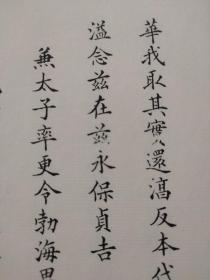 華我取其實還淳反本代
溢念兹在兹永保貞吉
兼太子率更令勃海男